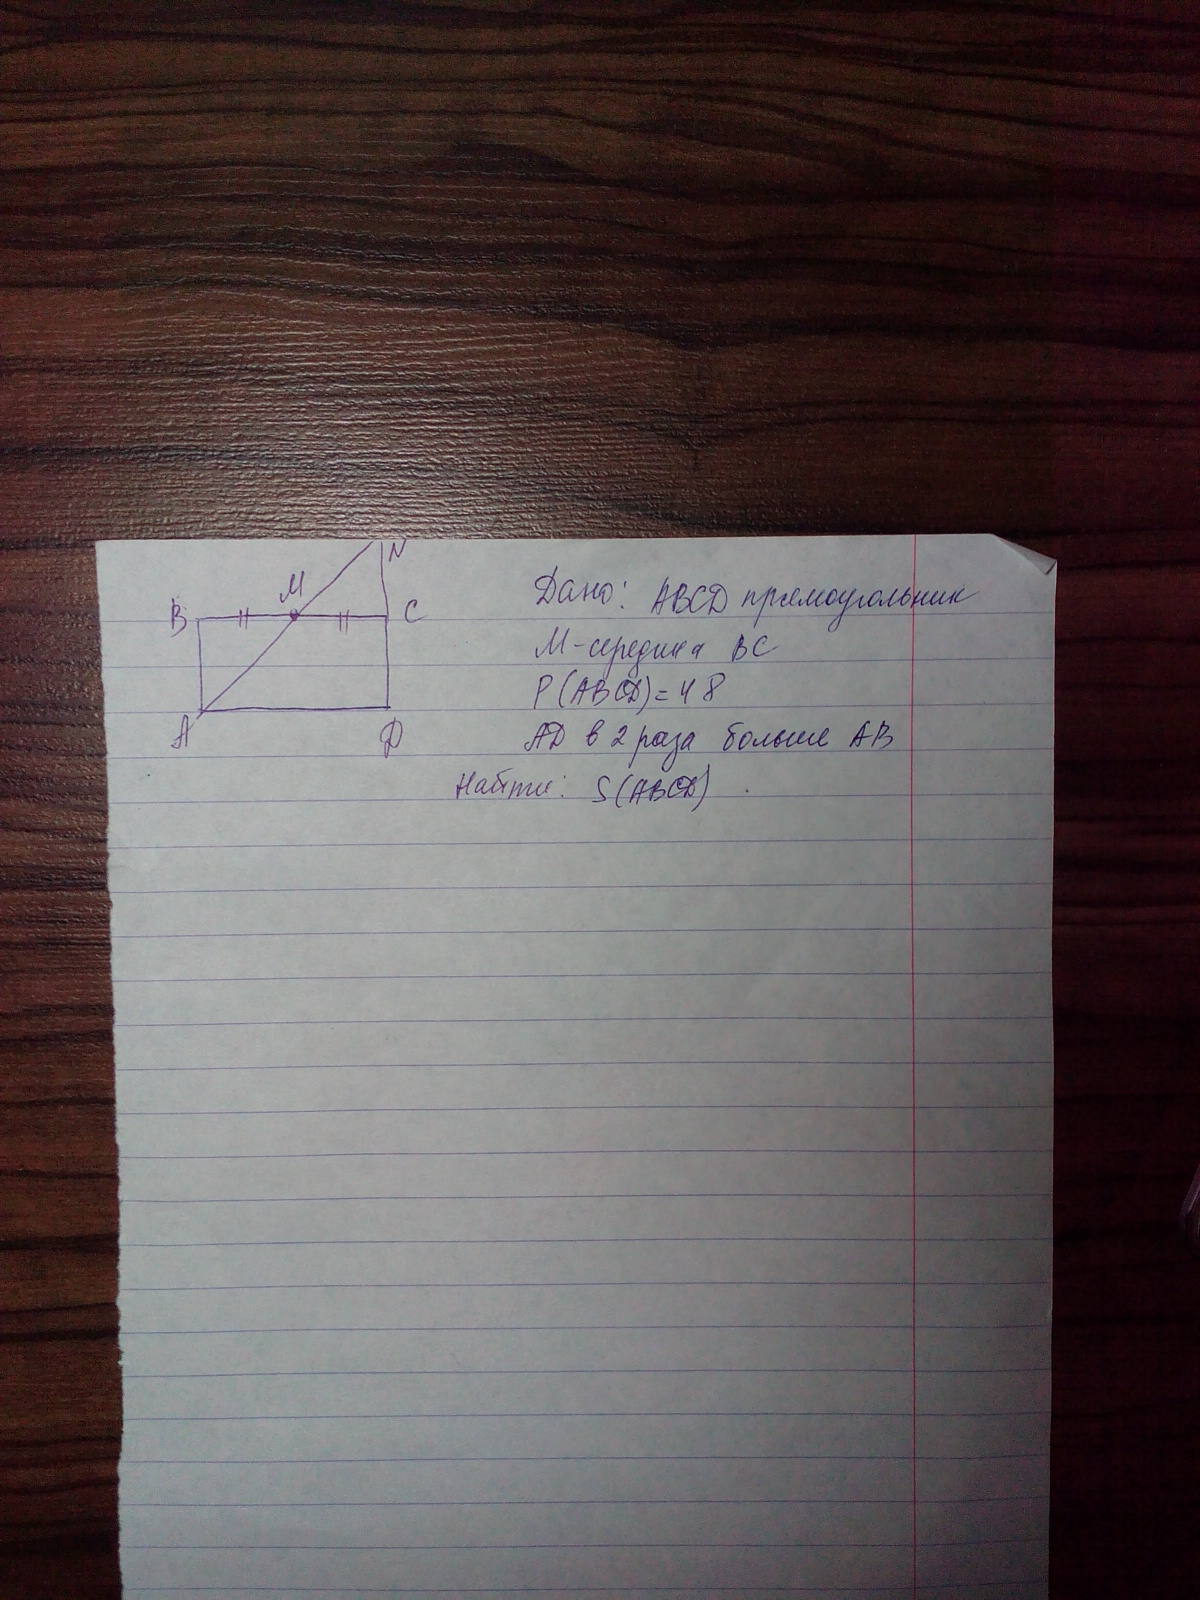 N
M
B
C
A
D
Дано: ABCD прямоугольник
M-середина BC
P(ABCD)=48
AD в 2 раза больше AB
Найти: S(ABCD)